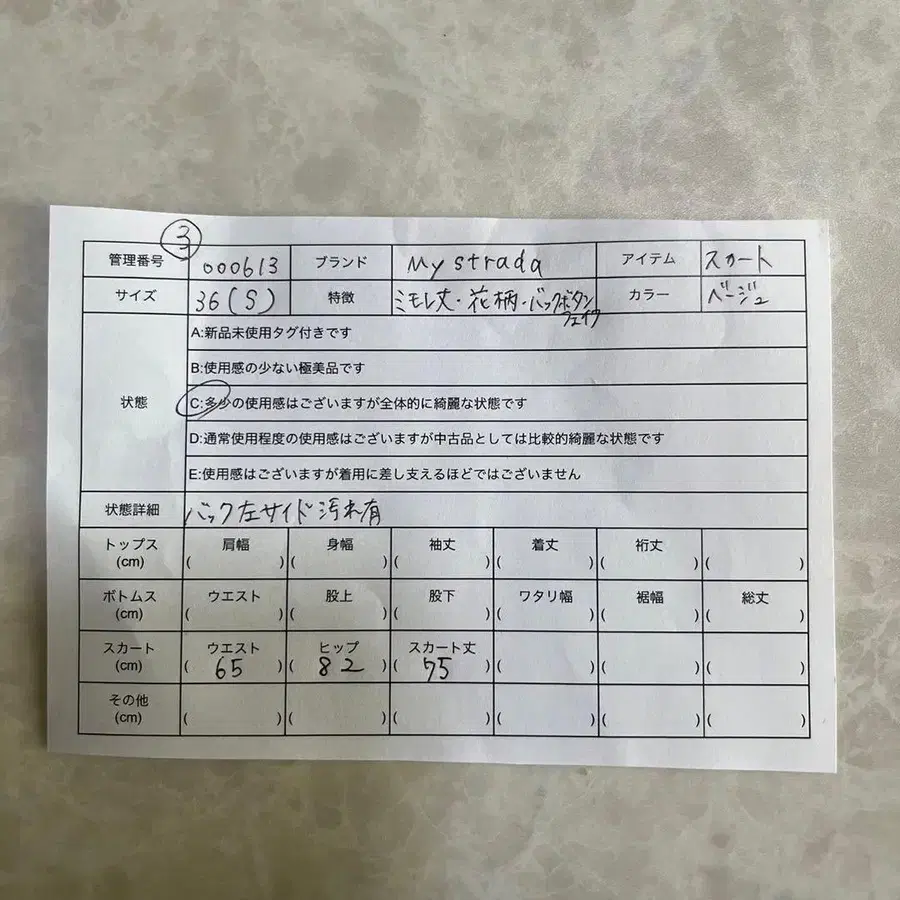 ③
管理番号 000613 ブランド My strada アイテム スカート
サイズ 36(S) 特徴 ミモレ丈・花柄・バックボタン カラー ベージュ
フェイク
A:新品未使用タグ付きです
B:使用感の少ない極美品です
状態 C:多少の使用感はございますが全体的に綺麗な状態です
D:通常使用程度の使用感はございますが中古品としては比較的綺麗な状態です
E:使用感はございますが着用に差し支えるほどではございません
状態詳細 バック左サイド汚れ有
トップス 肩幅 身幅 袖丈 着丈 裄丈
(cm) ( ) ( ) ( ) ( ) ( ) ( )
ボトムス ウエスト 股上 股下 ワタリ幅 裾幅 総丈
(cm) ( ) ( ) ( ) ( ) ( ) ( )
スカート ウエスト ヒップ スカート丈
(cm) ( 65 ) ( 82 ) ( 75 ) ( ) ( ) ( )
その他
(cm) ( ) ( ) ( ) ( ) ( ) ( )